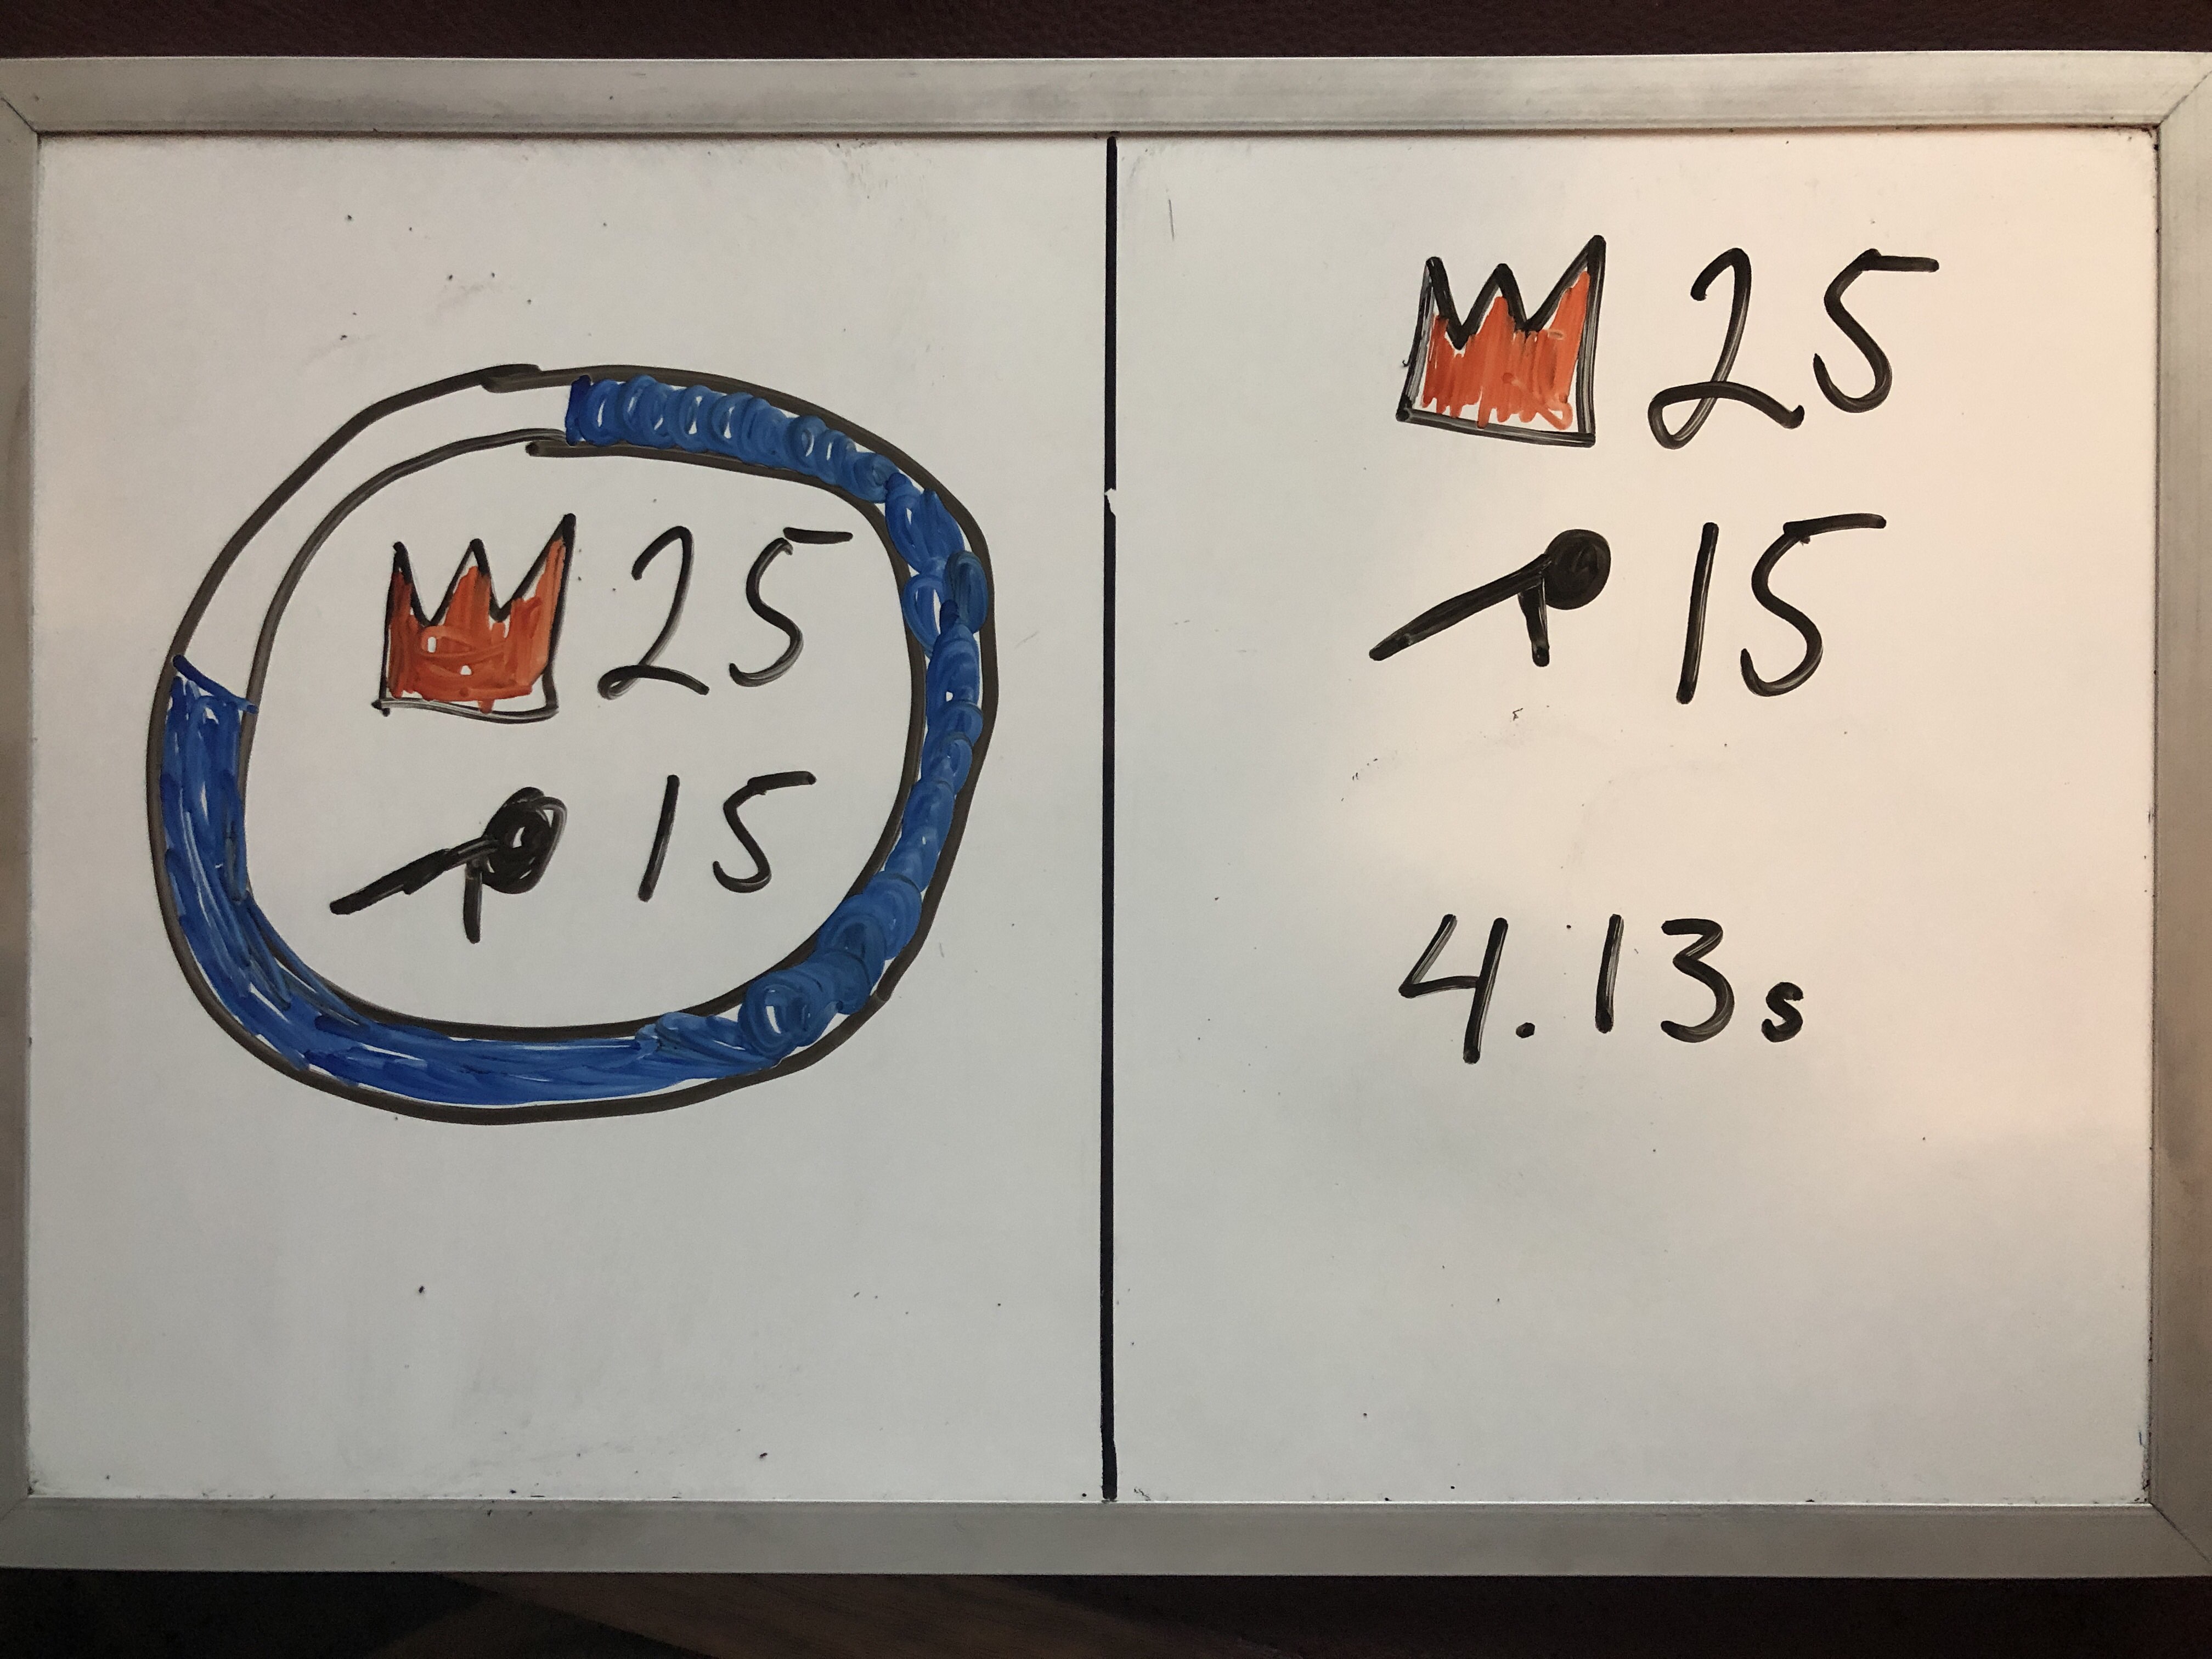 25
15
25
15
4.13s